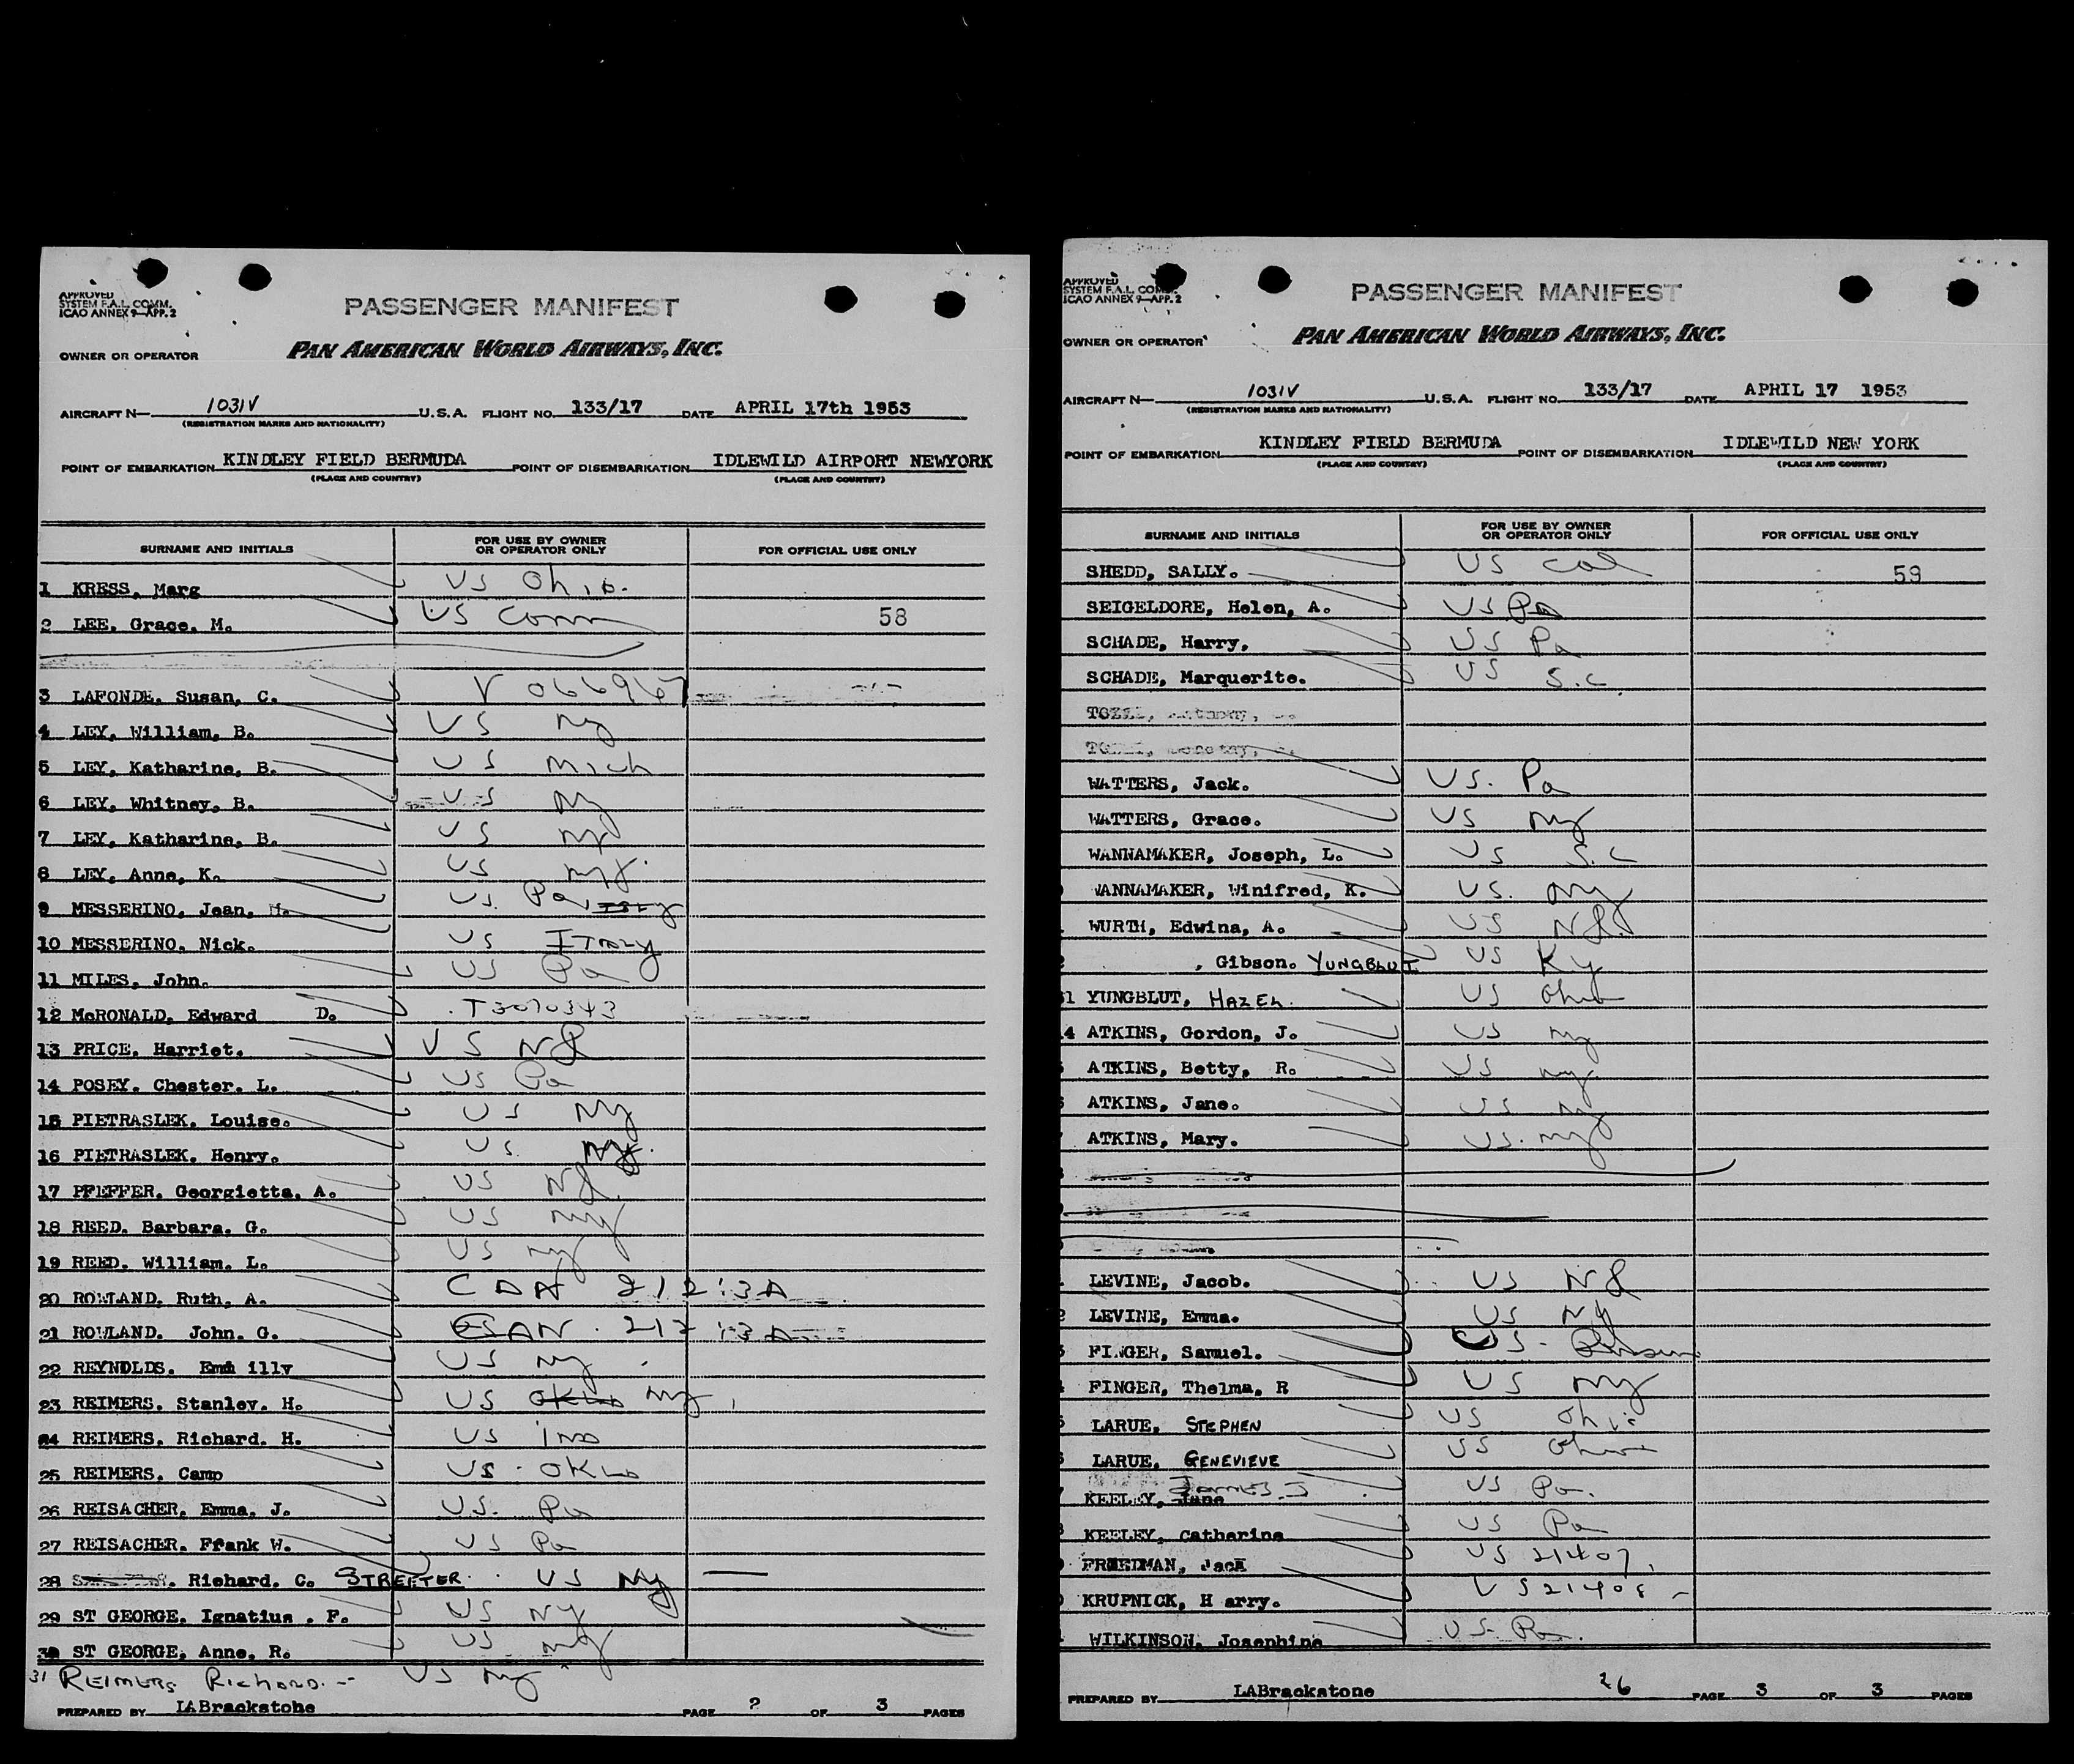 APPROVED
SYSTEM F.A.L. COMM.
ICAO ANNEX 9—APP. 2
PASSENGER MANIFEST
OWNER OR OPERATOR
PAN AMERICAN WORLD AIRWAYS, INC.
AIRCRAFT N— 1031V U.S.A. FLIGHT NO. 133/17 DATE APRIL 17th 1953
(REGISTRATION MARKS AND NATIONALITY)
POINT OF EMBARKATION KINDLEY FIELD BERMUDA POINT OF DISEMBARKATION IDLEWILD AIRPORT NEWYORK
(PLACE AND COUNTRY) (PLACE AND COUNTRY)
SURNAME AND INITIALS FOR USE BY OWNER OR OPERATOR ONLY FOR OFFICIAL USE ONLY
1 KRESS, Marg US Ohio.
2 LEE, Grace, M. US Conn 58
3 LAFONDE, Susan, C. V 066967
4 LEY, William, B. US NY
5 LEY, Katharine, B. US Mich
6 LEY, Whitney, B. US NY
7 LEY, Katharine, B. US NY
8 LEY, Anne, K. US NY.
9 MESSERINO, Jean, H. US. Pa,
10 MESSERINO, Nick. US ITALY
11 MILES, John. US Pa
12 McRONALD, Edward D. T3070343
13 PRICE, Harriet. US NJ
14 POSEY, Chester. L. US Pa
15 PIETRASLEK, Louise. US NY
16 PIETRASLEK, Henry. US. NY.
17 PFEFFER, Georgietta, A. US NJ.
18 REED, Barbara. G. US NY
19 REED, William. L. US NY
20 ROWLAND, Ruth, A. CDN 212:3A
21 ROWLAND. John. G. CAN. 212 :3A
22 REYNOLDS. Emm illy US NY
23 REIMERS. Stanley. H. US OKLA NY
24 REIMERS. Richard. H. US
25 REIMERS. Camp US. OKLA
26 REISACHER. Emma. J. US. Pa
27 REISACHER. Frank W. US Pa
28 . Richard. C. STREETER. US NY
29 ST GEORGE. Ignatius . F. US NY
30 ST GEORGE, Anne. R. US NY
31 REIMERS RICHARD. -- US NY
PREPARED BY LABrackstone PAGE 2 OF 3 PAGES
APPROVED
SYSTEM F.A.L. COMM.
ICAO ANNEX 9—APP. 2
PASSENGER MANIFEST
OWNER OR OPERATOR
PAN AMERICAN WORLD AIRWAYS, INC.
AIRCRAFT N— 1031V U.S.A. FLIGHT NO. 133/17 DATE APRIL 17 1953
(REGISTRATION MARKS AND NATIONALITY)
POINT OF EMBARKATION KINDLEY FIELD BERMUDA POINT OF DISEMBARKATION IDLEWILD NEW YORK
(PLACE AND COUNTRY) (PLACE AND COUNTRY)
SURNAME AND INITIALS FOR USE BY OWNER OR OPERATOR ONLY FOR OFFICIAL USE ONLY
SHEDD, SALLY. US Cal 59
SEIGELDORE, Helen, A. US Pa
SCHADE, Harry, US Pa
SCHADE, Marquerite. US S.C.
WATTERS, Jack. US. Pa
WATTERS, Grace. US NY
WANNAMAKER, Joseph, L. US S.C
WANNAMAKER, Winifred, K. US. NY
WURTH, Edwina, A. US NJ.
, Gibson. YUNGBLUT US Ky
YUNGBLUT, HAZEL. US Ohio
4 ATKINS, Gordon, J. US NY
ATKINS, Betty, R. US NY
ATKINS, Jane. US NY
ATKINS, Mary. US. NY
LEVINE, Jacob. US NJ
LEVINE, Emma. US NY
FINGER, Samuel. US -
FINGER, Thelma, R US NY
LARUE, STEPHEN US Ohio
LARUE. GENEVIEVE US Ohio
KEELEY, Jane James J US Pa.
KEELEY, Catharine US Pa
FRIEDMAN, Jack US 21407,
KRUPNICK, H arry. US21408 -
WILKINSON, Josephine US. Pa.
PREPARED BY LABrackstone 26 PAGE 3 OF 3 PAGES